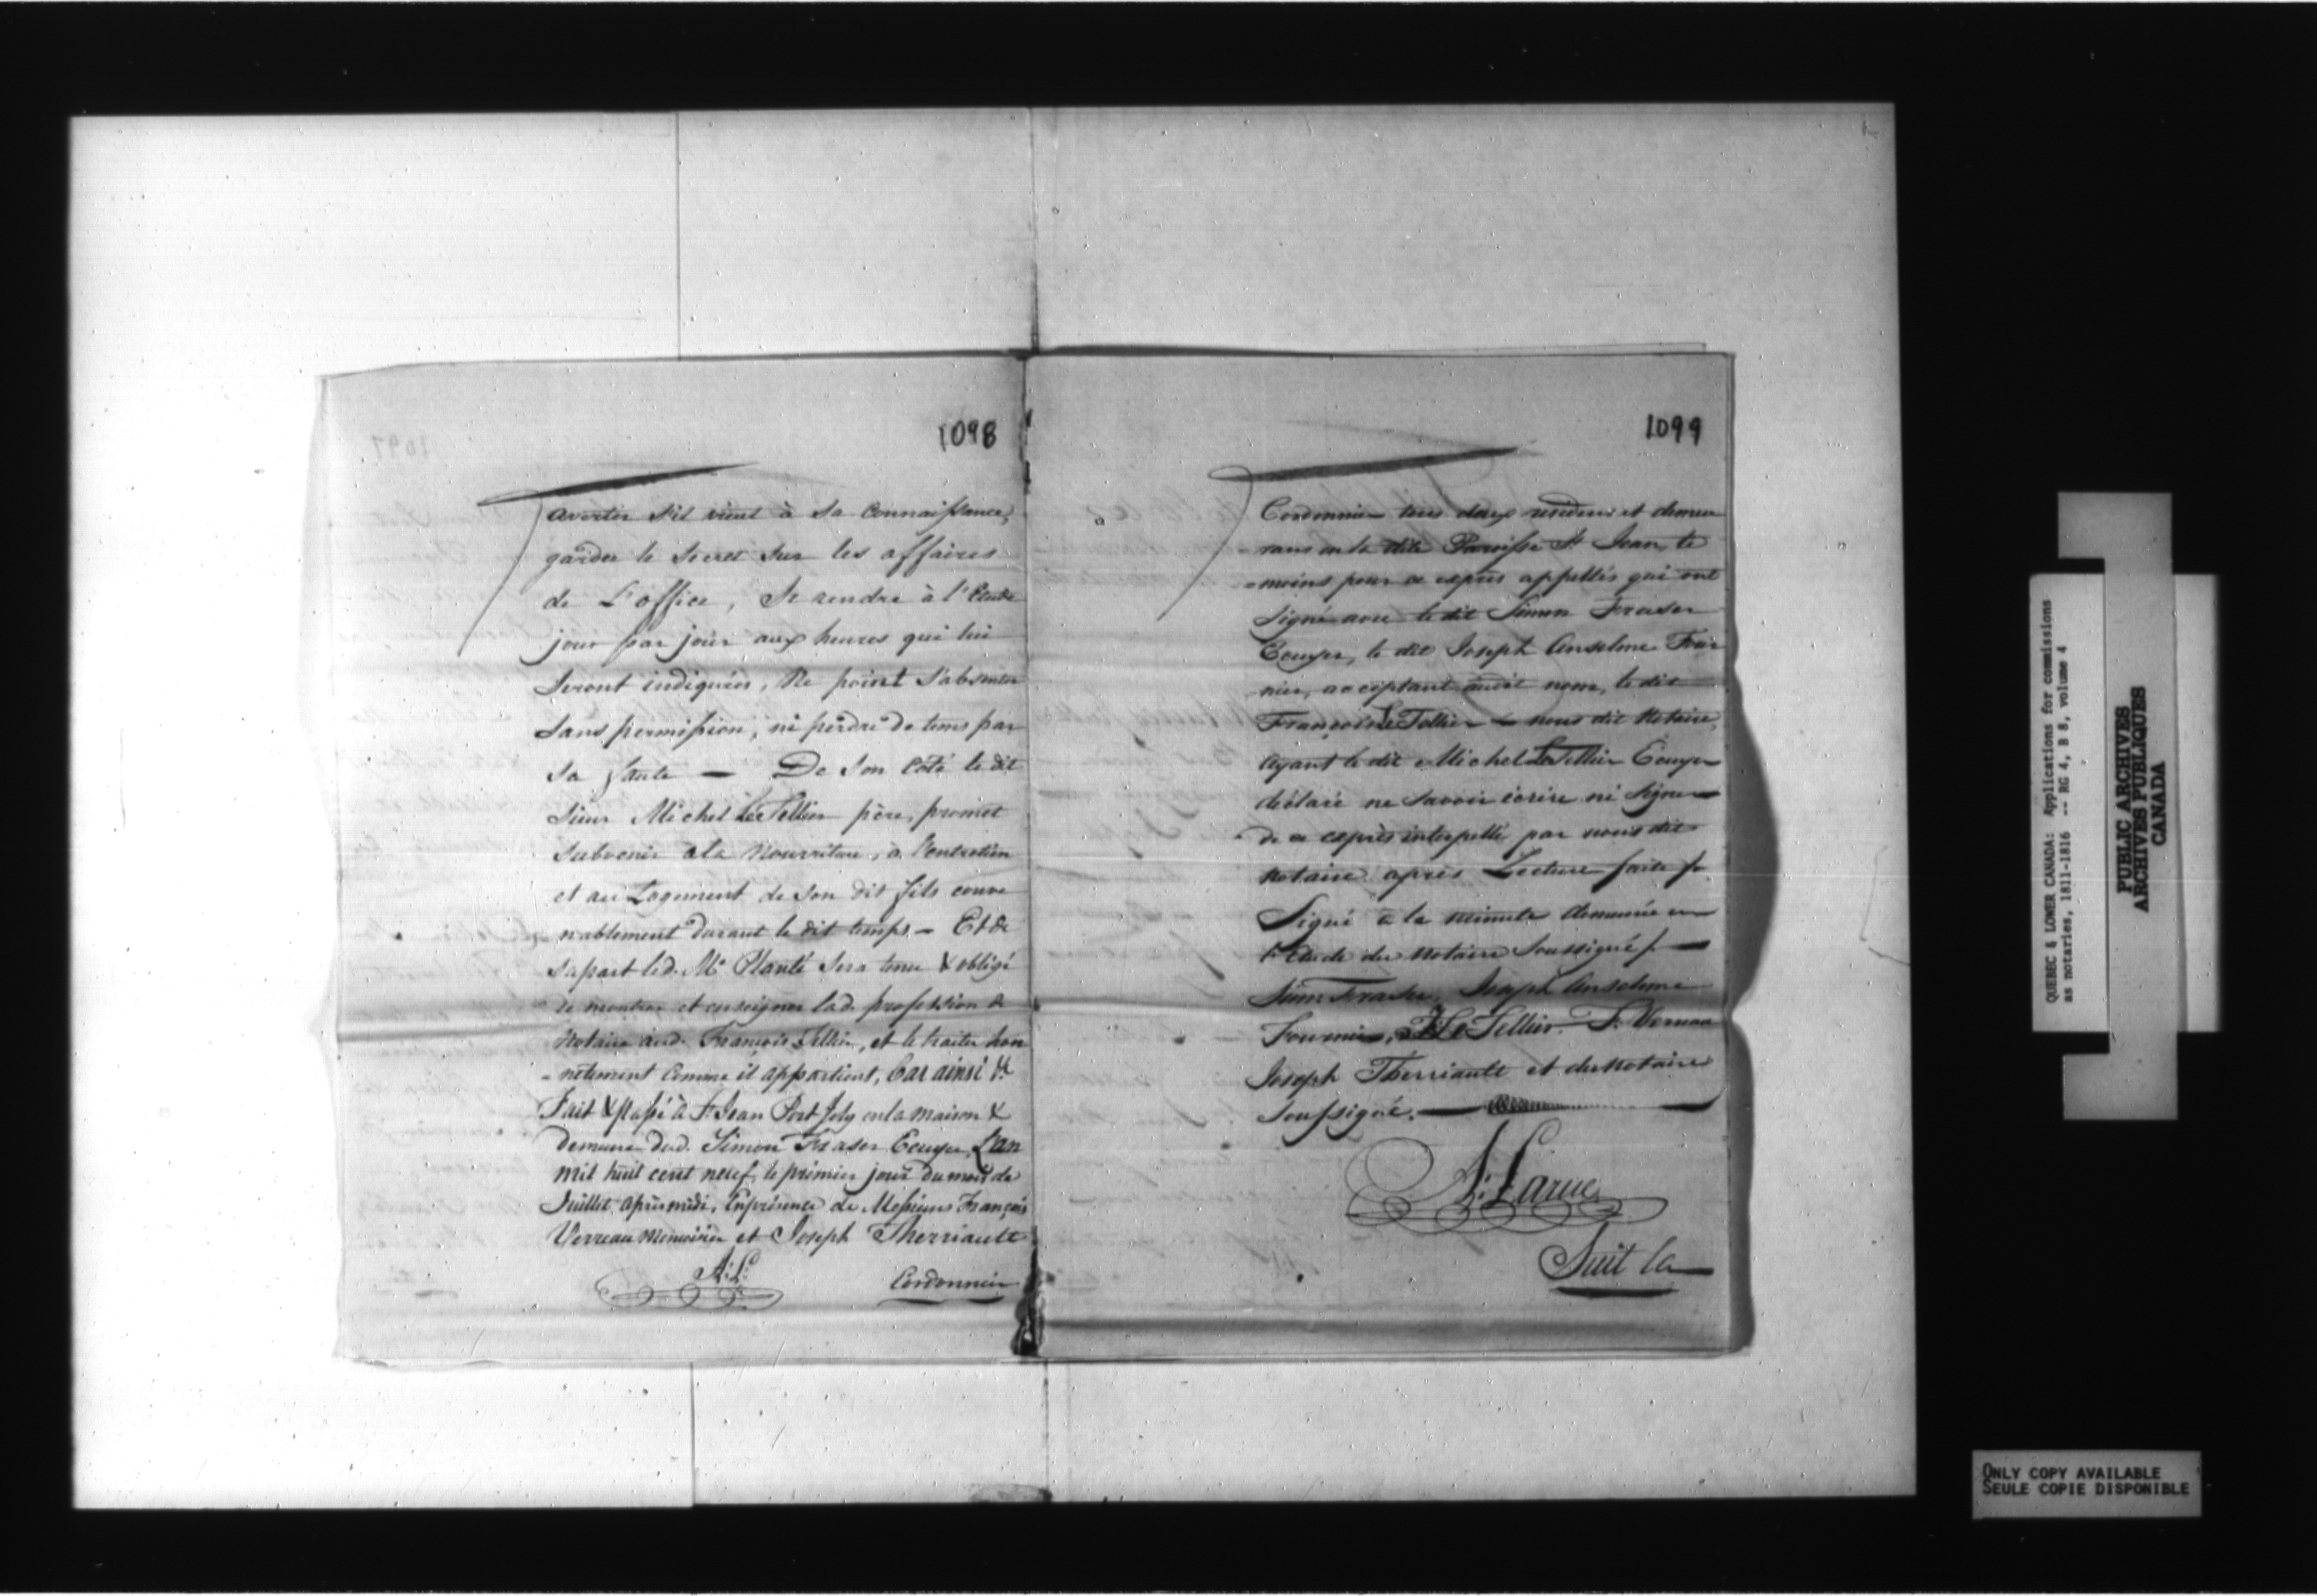 1098
avertir s'il vient à sa connaissance,
garder le secret sur les affaires
de L'office, se rendre à l'Etude
jour par jour aux heures qui lui
seront indiquées, Ne point s'absenter
sans permission, ni perdre de tems par
sa faute — De son Coté le dit
Sieur Michel LeTellier père, promet
subvenir à la Nourriture, à l'entretien
et au Logement de son dit fils conve
nablement durant le dit temps — Et de
sa part led. Mr Planté sera tenu & obligé
de montrer et enseigner lad. profession de
Notaire aud. François Tellier, et le traiter hon
-nêtement comme il appartient, Car ainsi &c
Fait & passé à St Jean Port Joly en la maison &
demeure dud. Simon Fraser Ecuyer, L'an
mil huit cent neuf, le premier jour du mois de
Juillet après midi, En présence de Messieurs François
Verreau Menuisier et Joseph Therriault
A: L:
Cordonnier
1099
Cordonnier tous deux résidens et demeu
rans en la dite Paroisse St Jean, te
-moins pour ce exprès appellés qui ont
signé avec le dit Simon Fraser
Ecuyer, le dit Joseph Anselme Four
nier, acceptant audit nom, le dit
François LeTellier & nous dit Notaire,
ayant le dit Michel LeTellier Ecuyer
déclaré ne savoir écrire ni signer
de ce exprès interpellé par nous dit
Notaire après Lecture faite
Signé à la minute demeurée en
l'Etude du Notaire Soussigné
Sim Fraser, Joseph Anselme
Fournier, F. LeTellier. F. Verreau
Joseph Therriault et du Notaire
soussigné.
A: Larue
Suit la
QUEBEC & LOWER CANADA: Applications for commissions
as notaries, 1811-1816 -- RG 4, B 8, volume 4
PUBLIC ARCHIVES
ARCHIVES PUBLIQUES
CANADA
ONLY COPY AVAILABLE
SEULE COPIE DISPONIBLE